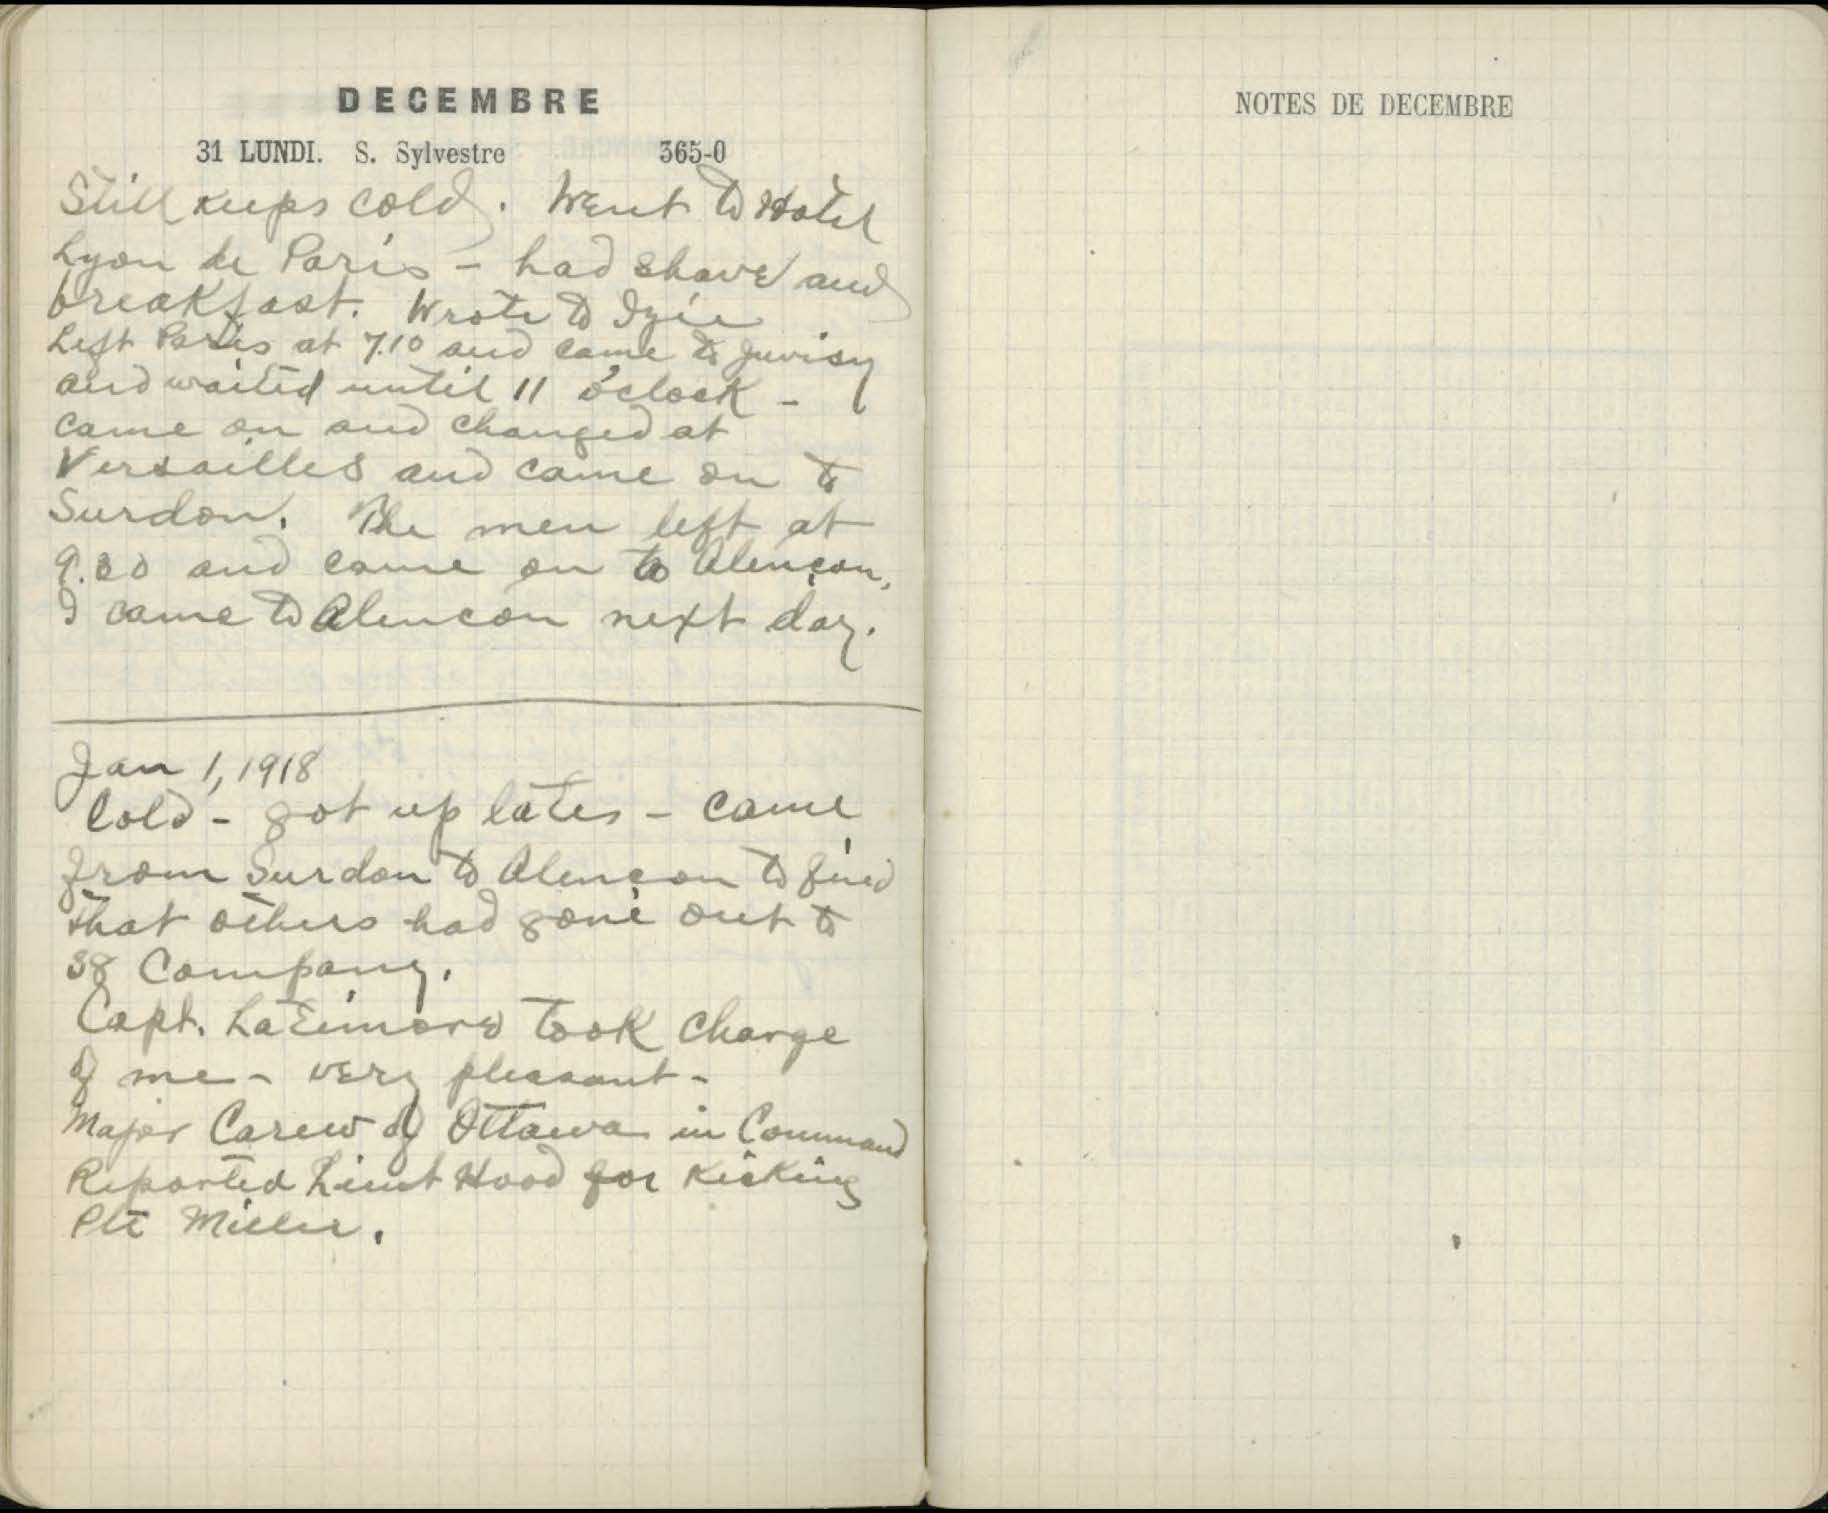 DECEMBRE
31 LUNDI. S. Sylvestre 365-0
Still keeps cold. Went to Hotel
Lyon de Paris - had shave and
breakfast. Wrote to Izie
Left Paris at 7.10 and came to Juvisy
and waited until 11 o'clock -
came on and changed at
Versailles and came on to
Surdon. The men left at
9.30 and came on to Alençon,
I came to Alencon next day.
Jan 1, 1918
Cold - got up late - came
from Surdon to Alençon to find
that others had gone out to
38 Company.
Capt. Latimore took charge
of me - very pleasant -
Major Carew of Ottawa in Command
Reported Lieut Hood for kicking
Pte Miller.
NOTES DE DECEMBRE